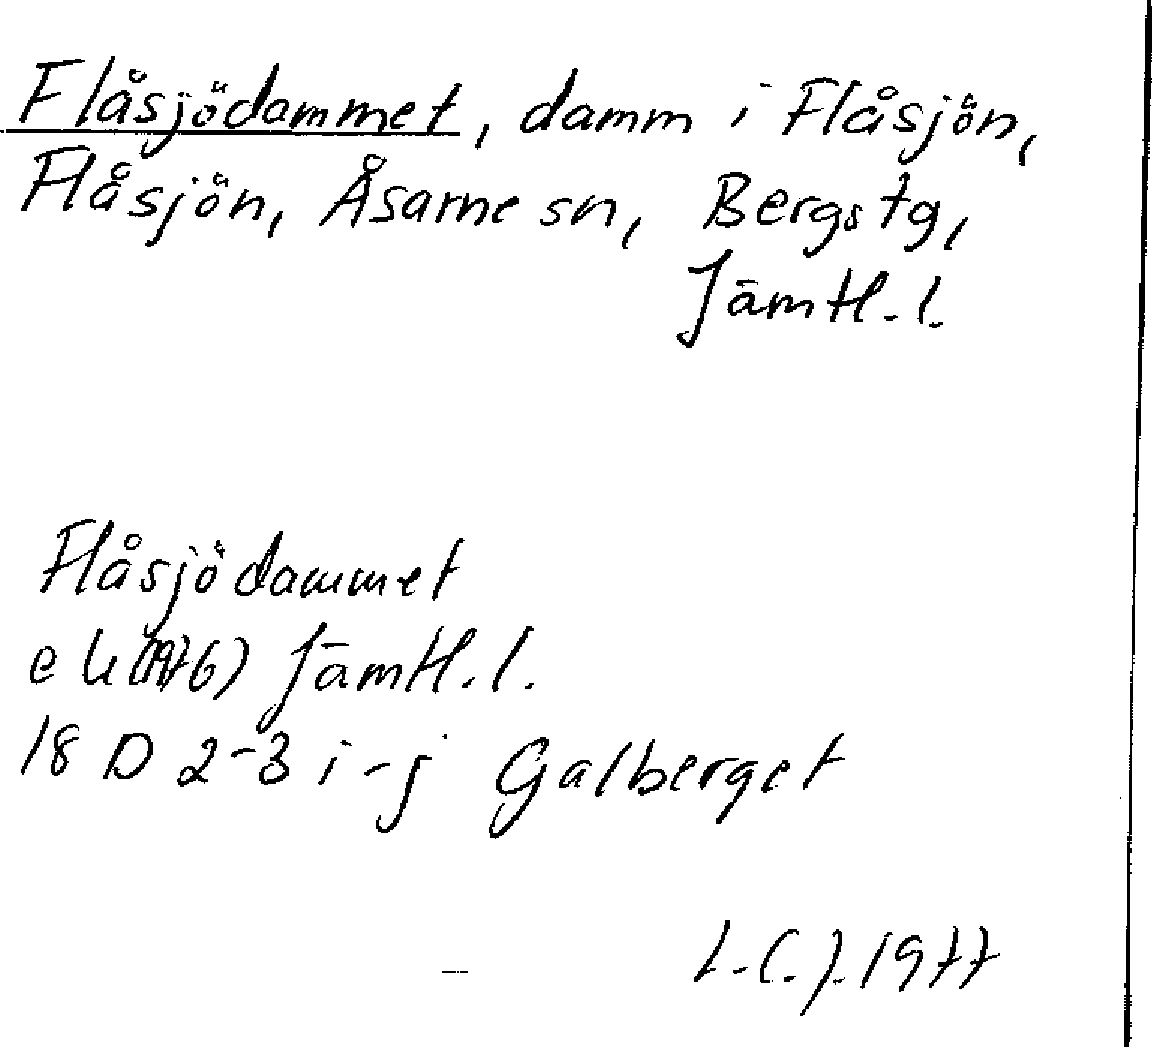 Flåsjödammet, damm i Flåsjön,
Flåsjön, Åsarne sn, Bergs tg,
Jämtl. l.
Flåsjödammet
ek (1976) Jämtl. l.
18 D 2-3 i-j Galberget
L.C.J. 1977